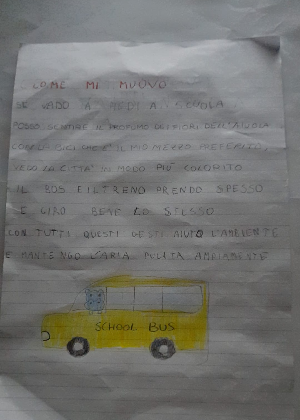 COME MI MUOVO
SE VADO A PIEDI A SCUOLA
POSSO SENTIRE IL PROFUMO DEI FIORI DELL'AIUOLA
CON LA BICI CHE È IL MIO MEZZO PREFERITO,
VEDO LA CITTÀ IN MODO PIÙ COLORITO
IL BUS E IL TRENO PRENDO SPESSO
E GIRO BENE LO STESSO
CON TUTTI QUESTI GESTI AIUTO L'AMBIENTE
E MANTENGO L'ARIA PULITA
SCHOOL BUS